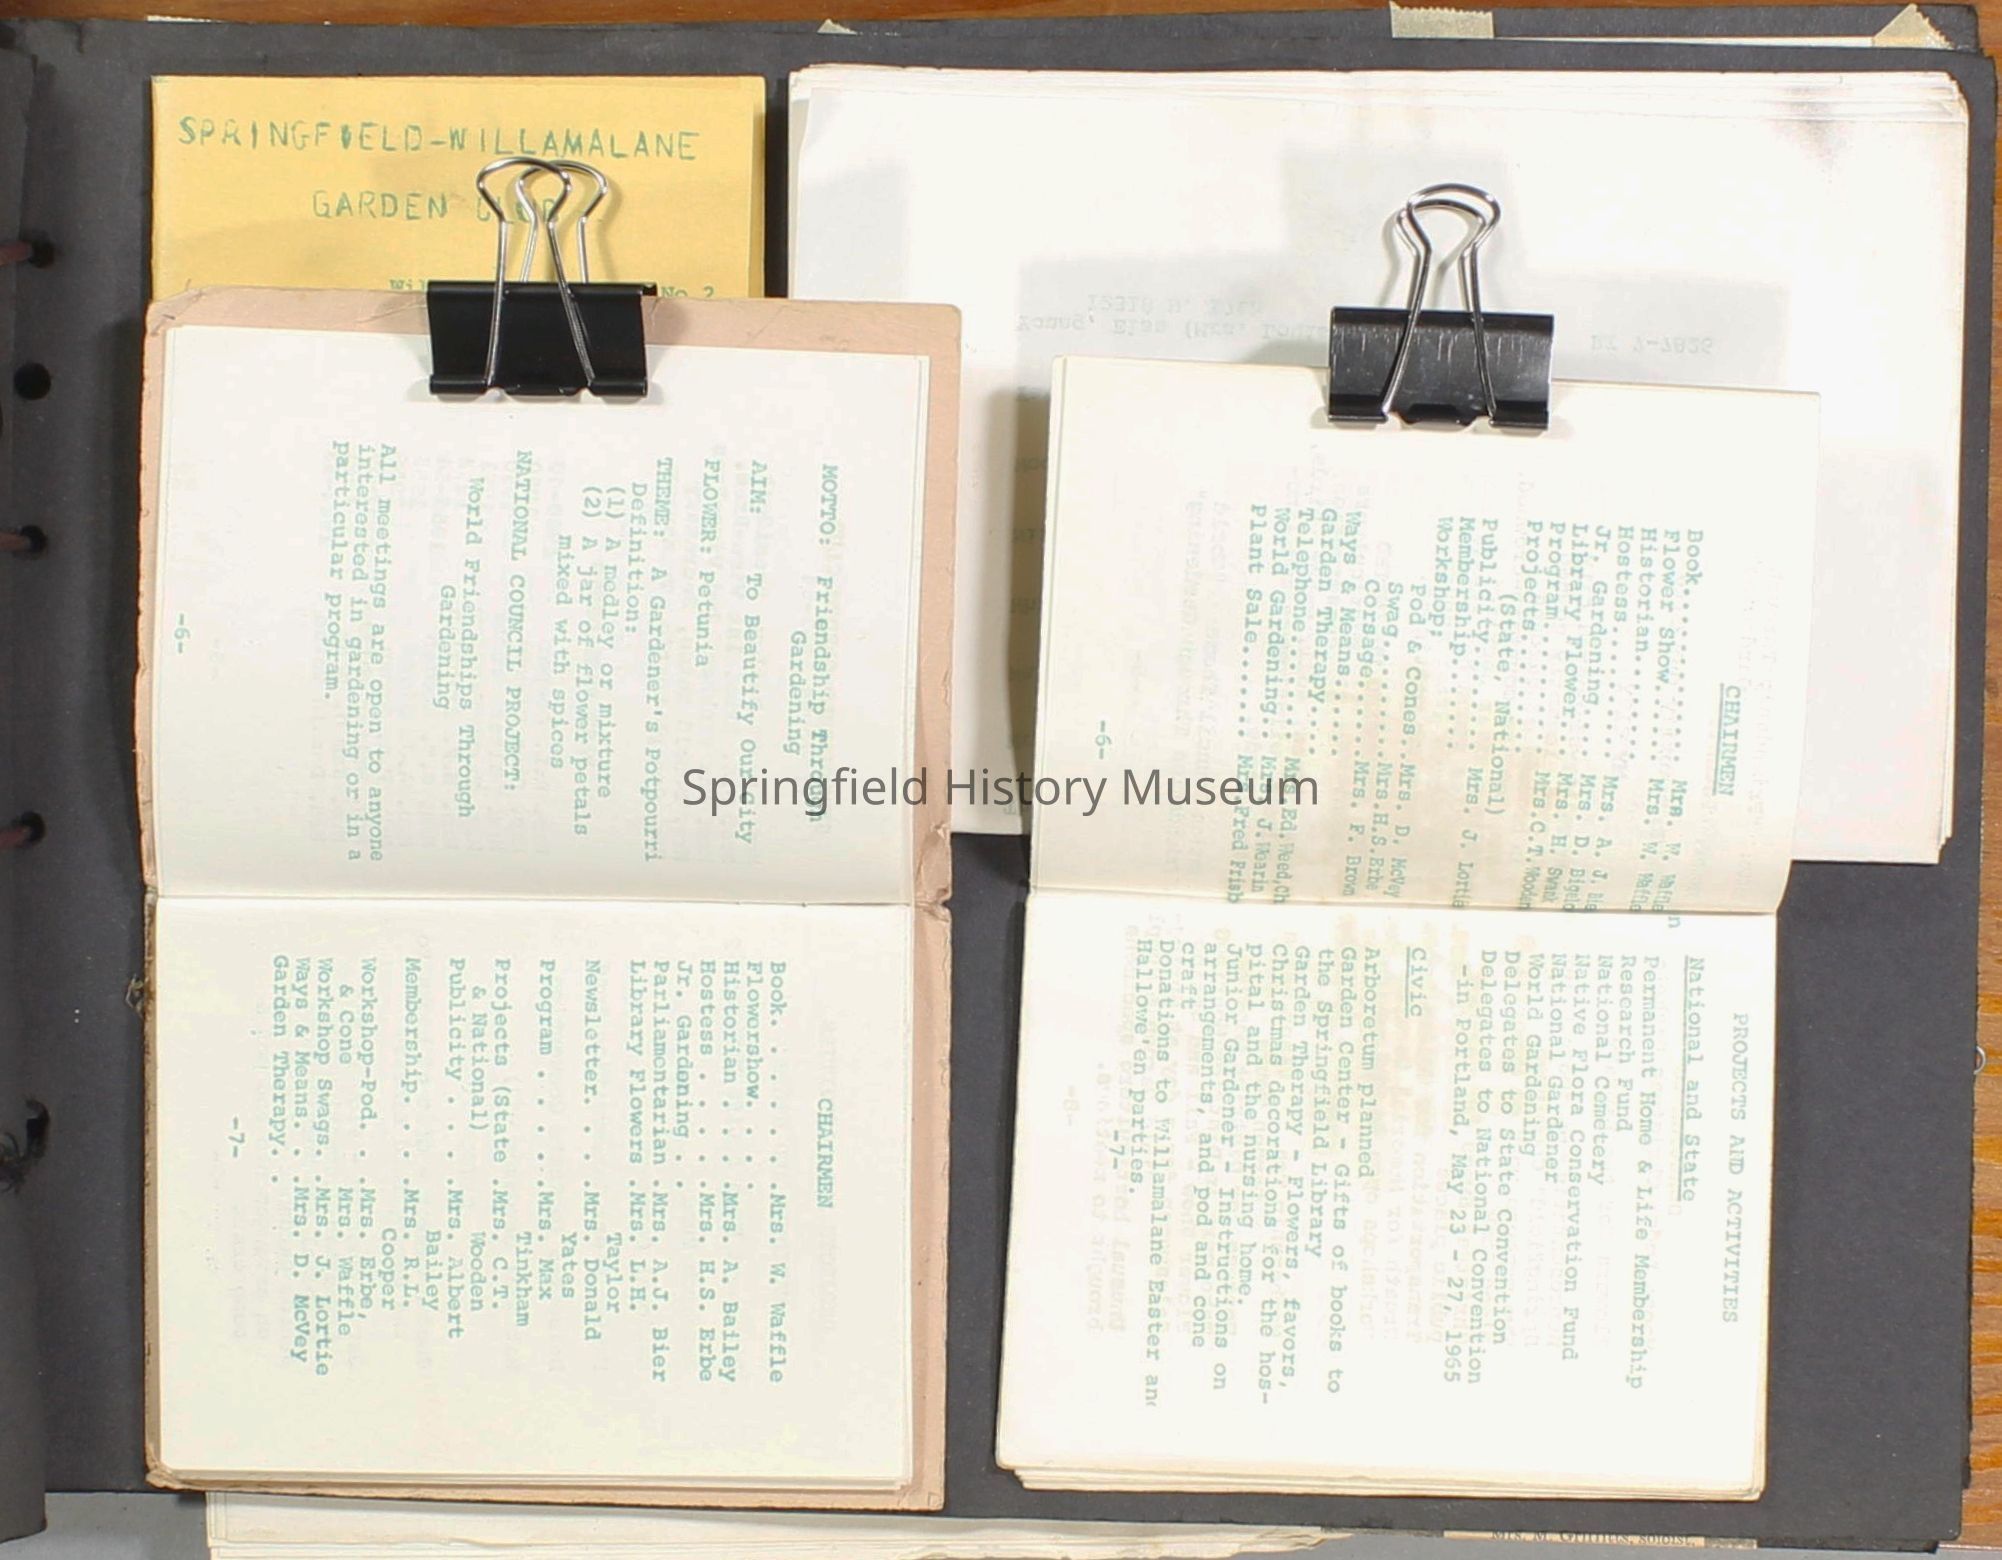 SPRINGFIELD-WILLAMALANE
GARDEN CLUB
No 2
MOTTO: Friendship Through
Gardening
AIM: To Beautify Our City
FLOWER: Petunia
THEME: A Gardener's Potpourri
Definition:
(1) A medley or mixture
(2) A jar of flower petals
mixed with spices
NATIONAL COUNCIL PROJECT:
World Friendships Through
Gardening
All meetings are open to anyone
interested in gardening or in a
particular program.
-6-
CHAIRMEN
Book. . . . . . .Mrs. W. Waffle
Flowershow. . . .
Historian . . . .Mrs. A. Bailey
Hostess . . . . .Mrs. H.S. Erbe
Jr. Gardening . .
Parliamentarian .Mrs. A.J. Bier
Library Flowers .Mrs. L.H.
Taylor
Newsletter. . . .Mrs. Donald
Yates
Program . . . . .Mrs. Max
Tinkham
Projects (State .Mrs. C.T.
& National) Wooden
Publicity . . . .Mrs. Albert
Bailey
Membership. . . .Mrs. R.L.
Cooper
Workshop-Pod. . .Mrs. Erbe,
& Cone Mrs. Waffle
Workshop Swags. .Mrs. J. Lortie
Ways & Means. . .Mrs. D. McVey
Garden Therapy. .
-7-
CHAIRMEN
Book............. Mrs. W. Waffle
Flower Show......
Historian........ Mrs. W. Waffle
Hostess..........
Jr. Gardening.... Mrs. A. J.
Library Flower... Mrs. D.
Program.......... Mrs. H. Swank
Projects......... Mrs.C.T.Wooden
(State, National)
Publicity........ Mrs. J. Lortie
Membership.......
Workshop:
Pod & Cones..Mrs. D. McVey
Swag.........Mrs.H.S.Erbe
Corsage...... Mrs. F. Brown
Ways & Means.....
Garden Therapy...
Telephone........ Mrs.Ed.Weed,Ch
World Gardening.. Mrs. J.Wearin
Plant Sale....... Mrs.Fred Frisb
-6-
PROJECTS AND ACTIVITIES
National and State
Permanent Home & Life Membership
Research Fund
National Cemetery
Native Flora Conservation Fund
National Gardener
World Gardening
Delegates to State Convention
Delegates to National Convention
-in Portland, May 23 - 27, 1965
Civic
Arboretum planned
Garden Center - Gifts of books to
the Springfield Library
Garden Therapy - Flowers, favors,
Christmas decorations for the hos-
pital and the nursing home.
Junior Gardener - Instructions on
arrangements, and pod and cone
craft
Donations to Willamalane Easter and
Hallowe'en parties.
-7-
Mrs. M. Griffitts, soloist.
Springfield History Museum